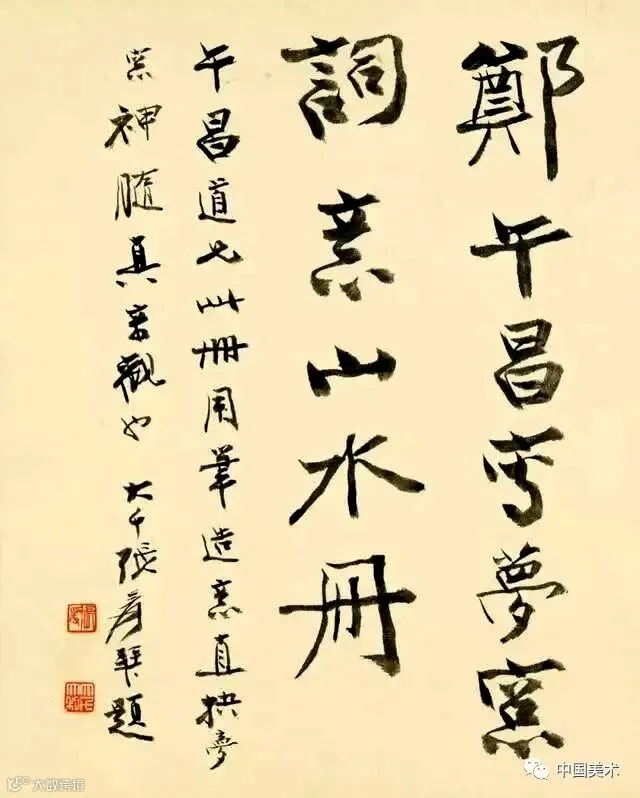 鄭午昌寫夢窻
詞意山水冊
午昌道兄此冊用筆造意直抉夢
窻神髓真奇觀也 大千張爰拜題
中国美术
大数跨境